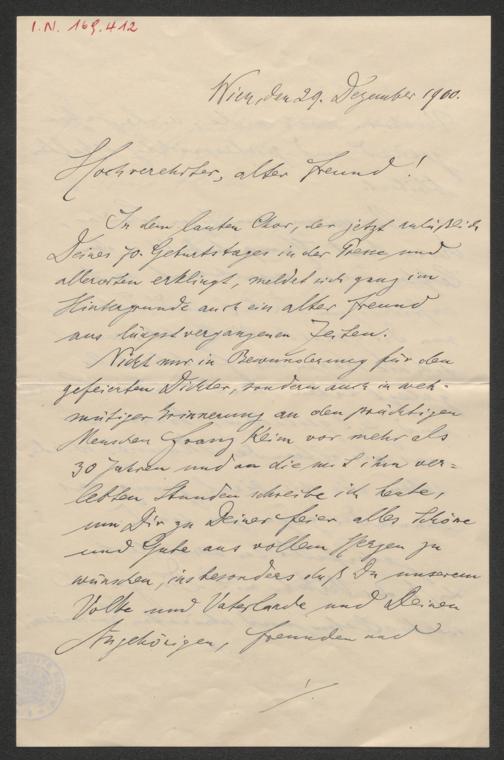 I.N. 169.412
Wien, den 29. Dezember 1910.
Hochverehrter, alter Freund!
In dem lauten Chor, der jetzt anläßlich
Deines 70. Geburtstages in der Presse und
allerorten erklingt, meldet sich ganz im
Hintergrunde auch ein alter Freund
aus längstvergangenen Zeiten.
Nicht nur in Bewunderung für den
gefeierten Dichter, sondern auch in weh-
mütiger Erinnerung an den prächtigen
Menschen Franz Keim vor mehr als
30 Jahren und an die mit ihm ver-
lebten Stunden schreibe ich heute,
um Dir zu Deiner Feier alles Schöne
und Gute aus vollem Herzen zu
wünschen, insbesonders daß Du unserem
Volke und Vaterlande und Deinen
Angehörigen, Freunden und